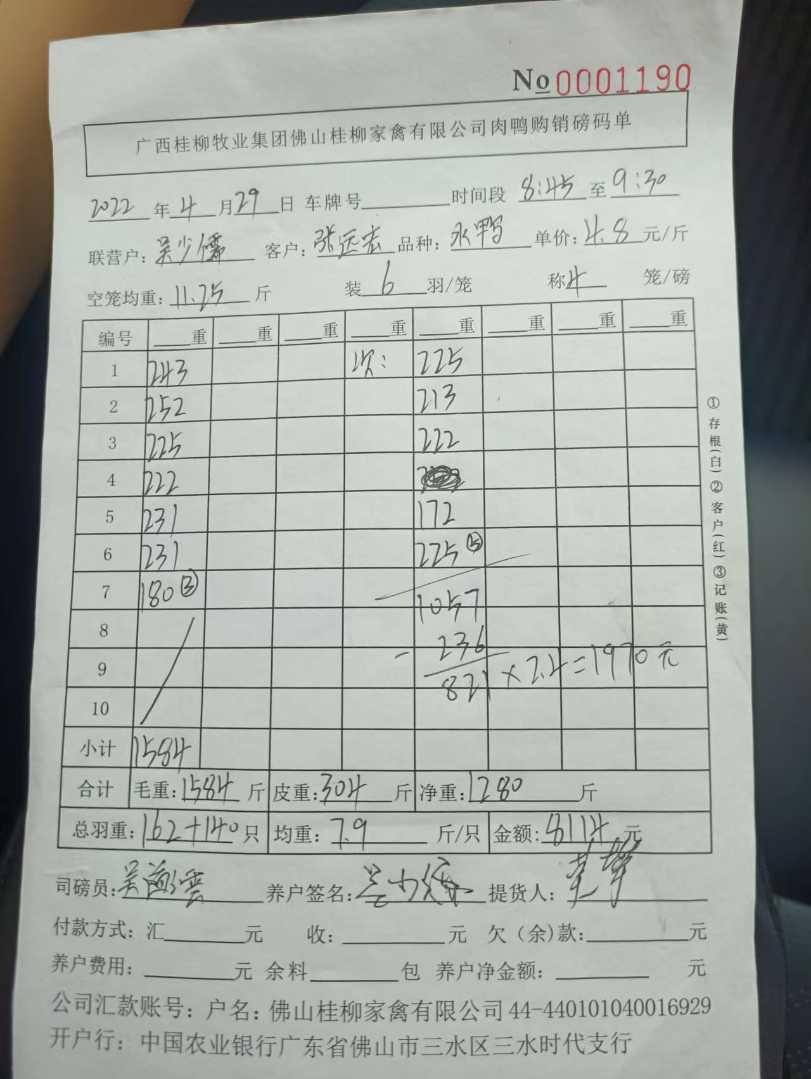 No 0001190
广西桂柳牧业集团佛山桂柳家禽有限公司肉鸭购销磅码单
2022 年 4 月 29 日 车牌号 时间段 8:45 至 9:30
联营户: 吴少儒 客户: 张远宏 品种: 水鸭 单价: 4.8 元/斤
空笼均重: 11.25 斤 装 6 羽/笼 称 4 笼/磅
编号 重 重 重 重 重 重 重 重
1 243 次: 225
2 252 213
3 225 222
4 222
5 231 172
6 231 225 ⑤
7 180 ③ 1057
8 - 236
9 821 × 2.4 = 1970 元
10
小计 1584
合计 毛重: 1584 斤 皮重: 304 斤 净重: 1280 斤
总羽重: 162+140 只 均重: 7.9 斤/只 金额: 8114 元
司磅员: 养户签名: 提货人:
付款方式: 汇 元 收: 元 欠（余)款: 元
养户费用: 元 余料 包 养户净金额: 元
公司汇款账号: 户名: 佛山桂柳家禽有限公司 44-440101040016929
开户行: 中国农业银行广东省佛山市三水区三水时代支行
①存根(白)②客户(红)③记账(黄)